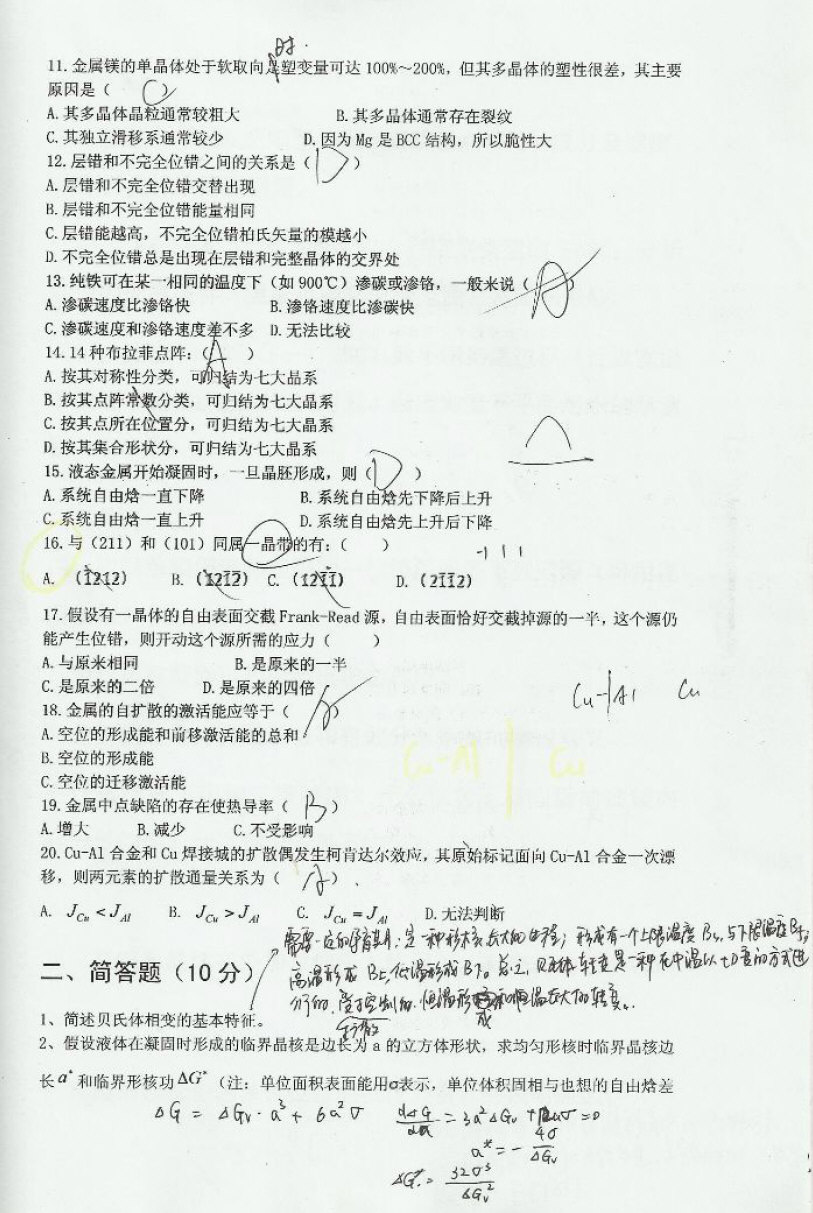 时.
11. 金属镁的单晶体处于软取向是塑变量可达 100%～200%，但其多晶体的塑性很差，其主要
原因是（ C ）
A. 其多晶体晶粒通常较粗大 B. 其多晶体通常存在裂纹
C. 其独立滑移系通常较少 D. 因为 Mg 是 BCC 结构，所以脆性大
12. 层错和不完全位错之间的关系是（ D ）
A. 层错和不完全位错交替出现
B. 层错和不完全位错能量相同
C. 层错能越高，不完全位错柏氏矢量的模越小
D. 不完全位错总是出现在层错和完整晶体的交界处
13. 纯铁可在某一相同的温度下（如 900℃）渗碳或渗铬，一般来说（ A ）
A. 渗碳速度比渗铬快 B. 渗铬速度比渗碳快
C. 渗碳速度和渗铬速度差不多 D. 无法比较
14. 14 种布拉菲点阵：（ A ）
A. 按其对称性分类，可归结为七大晶系
B. 按其点阵常数分类，可归结为七大晶系
C. 按其点所在位置分，可归结为七大晶系
D. 按其集合形状分，可归结为七大晶系
15. 液态金属开始凝固时，一旦晶胚形成，则（ D ）
A. 系统自由焓一直下降 B. 系统自由焓先下降后上升
C. 系统自由焓一直上升 D. 系统自由焓先上升后下降
16. 与（211）和（101）同属一晶带的有：（ ）
-1 1 1
A. (1̄21̄2) B. (1̄21̄2̄) C. (121̄1̄) D. (21̄1̄2)
17. 假设有一晶体的自由表面交截 Frank-Read 源，自由表面恰好交截掉源的一半，这个源仍
能产生位错，则开动这个源所需的应力（ ）
A. 与原来相同 B. 是原来的一半
C. 是原来的二倍 D. 是原来的四倍
Cu-Al Cu
18. 金属的自扩散的激活能应等于（ A ）
A. 空位的形成能和前移激活能的总和
B. 空位的形成能
Cu-Al | Cu
C. 空位的迁移激活能
19. 金属中点缺陷的存在使热导率（ B ）
A. 增大 B. 减少 C. 不受影响
20. Cu-Al 合金和 Cu 焊接城的扩散偶发生柯肯达尔效应，其原始标记面向 Cu-Al 合金一次漂
移，则两元素的扩散通量关系为（ A ）.
A. J_Cu < J_Al B. J_Cu > J_Al C. J_Cu = J_Al D. 无法判断
需要一定的孕育期；是一种形核长大的过程；形成有一个上限温度 Bs，与下限温度 Bf；
二、简答题（10 分）
高温形成 B上，低温形成 B下。总之，贝氏体转变是一种在中温以切变的方式进
行的，受扩散控制的，恒温形成和恒温长大的转变。
1、简述贝氏体相变的基本特征。
2、假设液体在凝固时形成的临界晶核是边长为 a 的立方体形状，求均匀形核时临界晶核边
长 a* 和临界形核功 ΔG*（注：单位面积表面能用σ表示，单位体积固相与也想的自由焓差
ΔG = ΔGv·a³ + 6a²σ dΔG/da = 3a²ΔGv + 12aσ = 0
a* = -4σ/ΔGv
ΔG* = 32σ³/ΔGv²